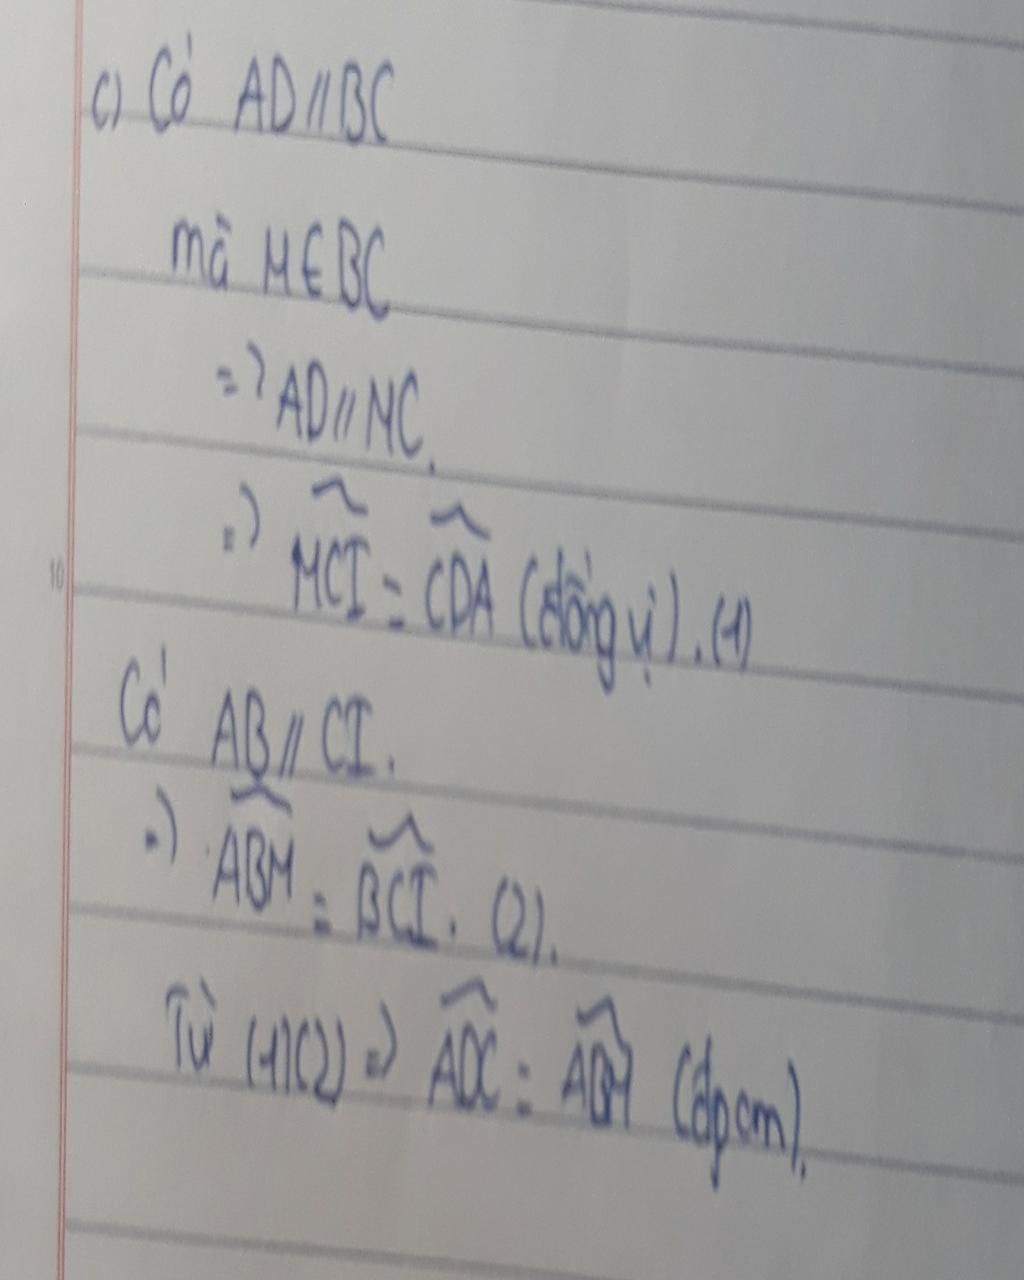 c) Có AD // BC
mà M ∈ BC
=> AD // MC.
=> \widehat{MCI} = \widehat{CDA} (đồng vị). (1)
10
Có AB // CI.
=> \widehat{ABM} = \widehat{BCI}. (2).
Từ (1)(2) => \widehat{ADC} = \widehat{ABM} (đpcm).